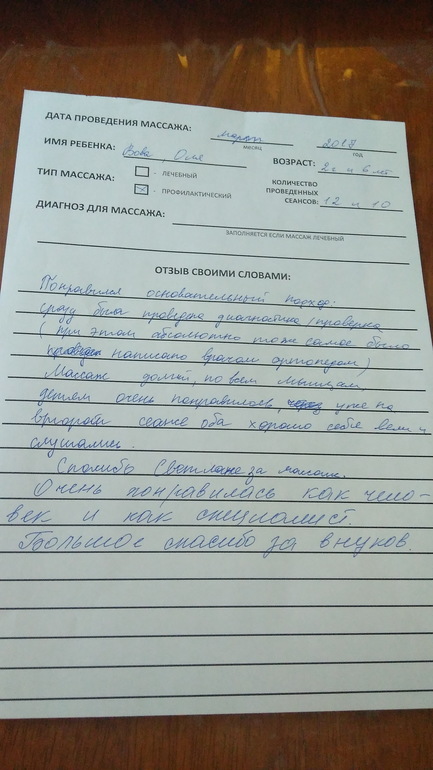 ДАТА ПРОВЕДЕНИЯ МАССАЖА: март 2017
месяц год
ИМЯ РЕБЕНКА: Вова, Оля ВОЗРАСТ: 2г и 6 лет
ТИП МАССАЖА: - ЛЕЧЕБНЫЙ
- ПРОФИЛАКТИЧЕСКИЙ
КОЛИЧЕСТВО
ПРОВЕДЕННЫХ
СЕАНСОВ: 12 и 10
ДИАГНОЗ ДЛЯ МАССАЖА:
ЗАПОЛНЯЕТСЯ ЕСЛИ МАССАЖ ЛЕЧЕБНЫЙ
ОТЗЫВ СВОИМИ СЛОВАМИ:
Понравился основательный подход.
сразу была проведена диагностика/проверка
(при этом абсолютно тоже самое было
написано врачам ортопедом)
Массаж долгий, по всем мышцам
детям очень понравилось, уже на
второй сеансе оба хорошо себя вели и
слушались.
Спасибо Светлане за массаж.
Очень понравилась как чело-
век и как специалист.
Большое спасибо за внуков.